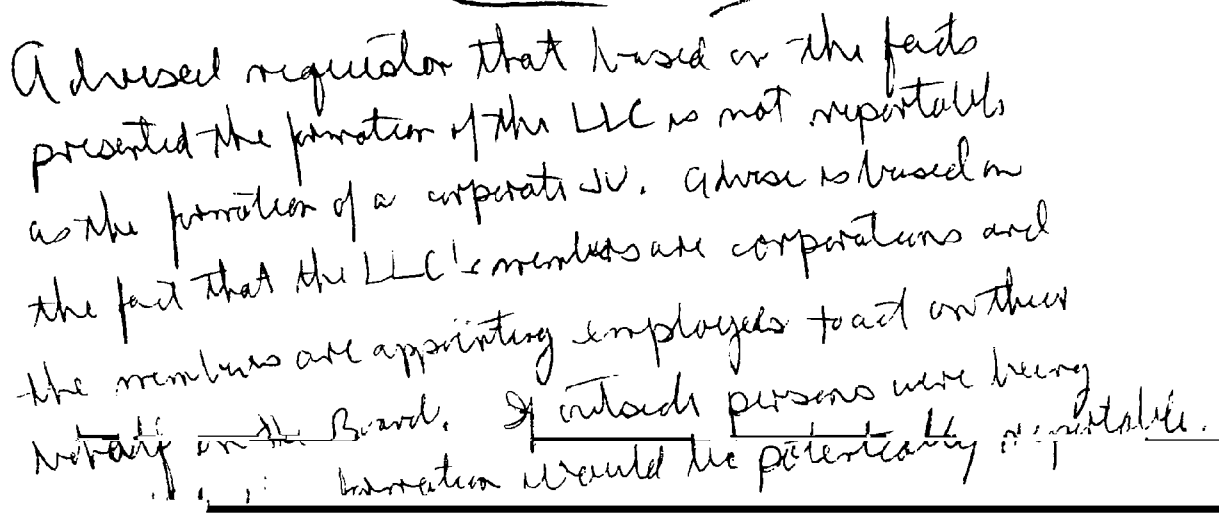 Advised requestor that based on the facts
presented the formation of the LLC is not reportable
as the formation of a corporate JV. Advise is based on
the fact that the LLC's members are corporations and
the members are appointing employees to act on their
behalf on the Board. If outside persons were being
formation would be potentially reportable.